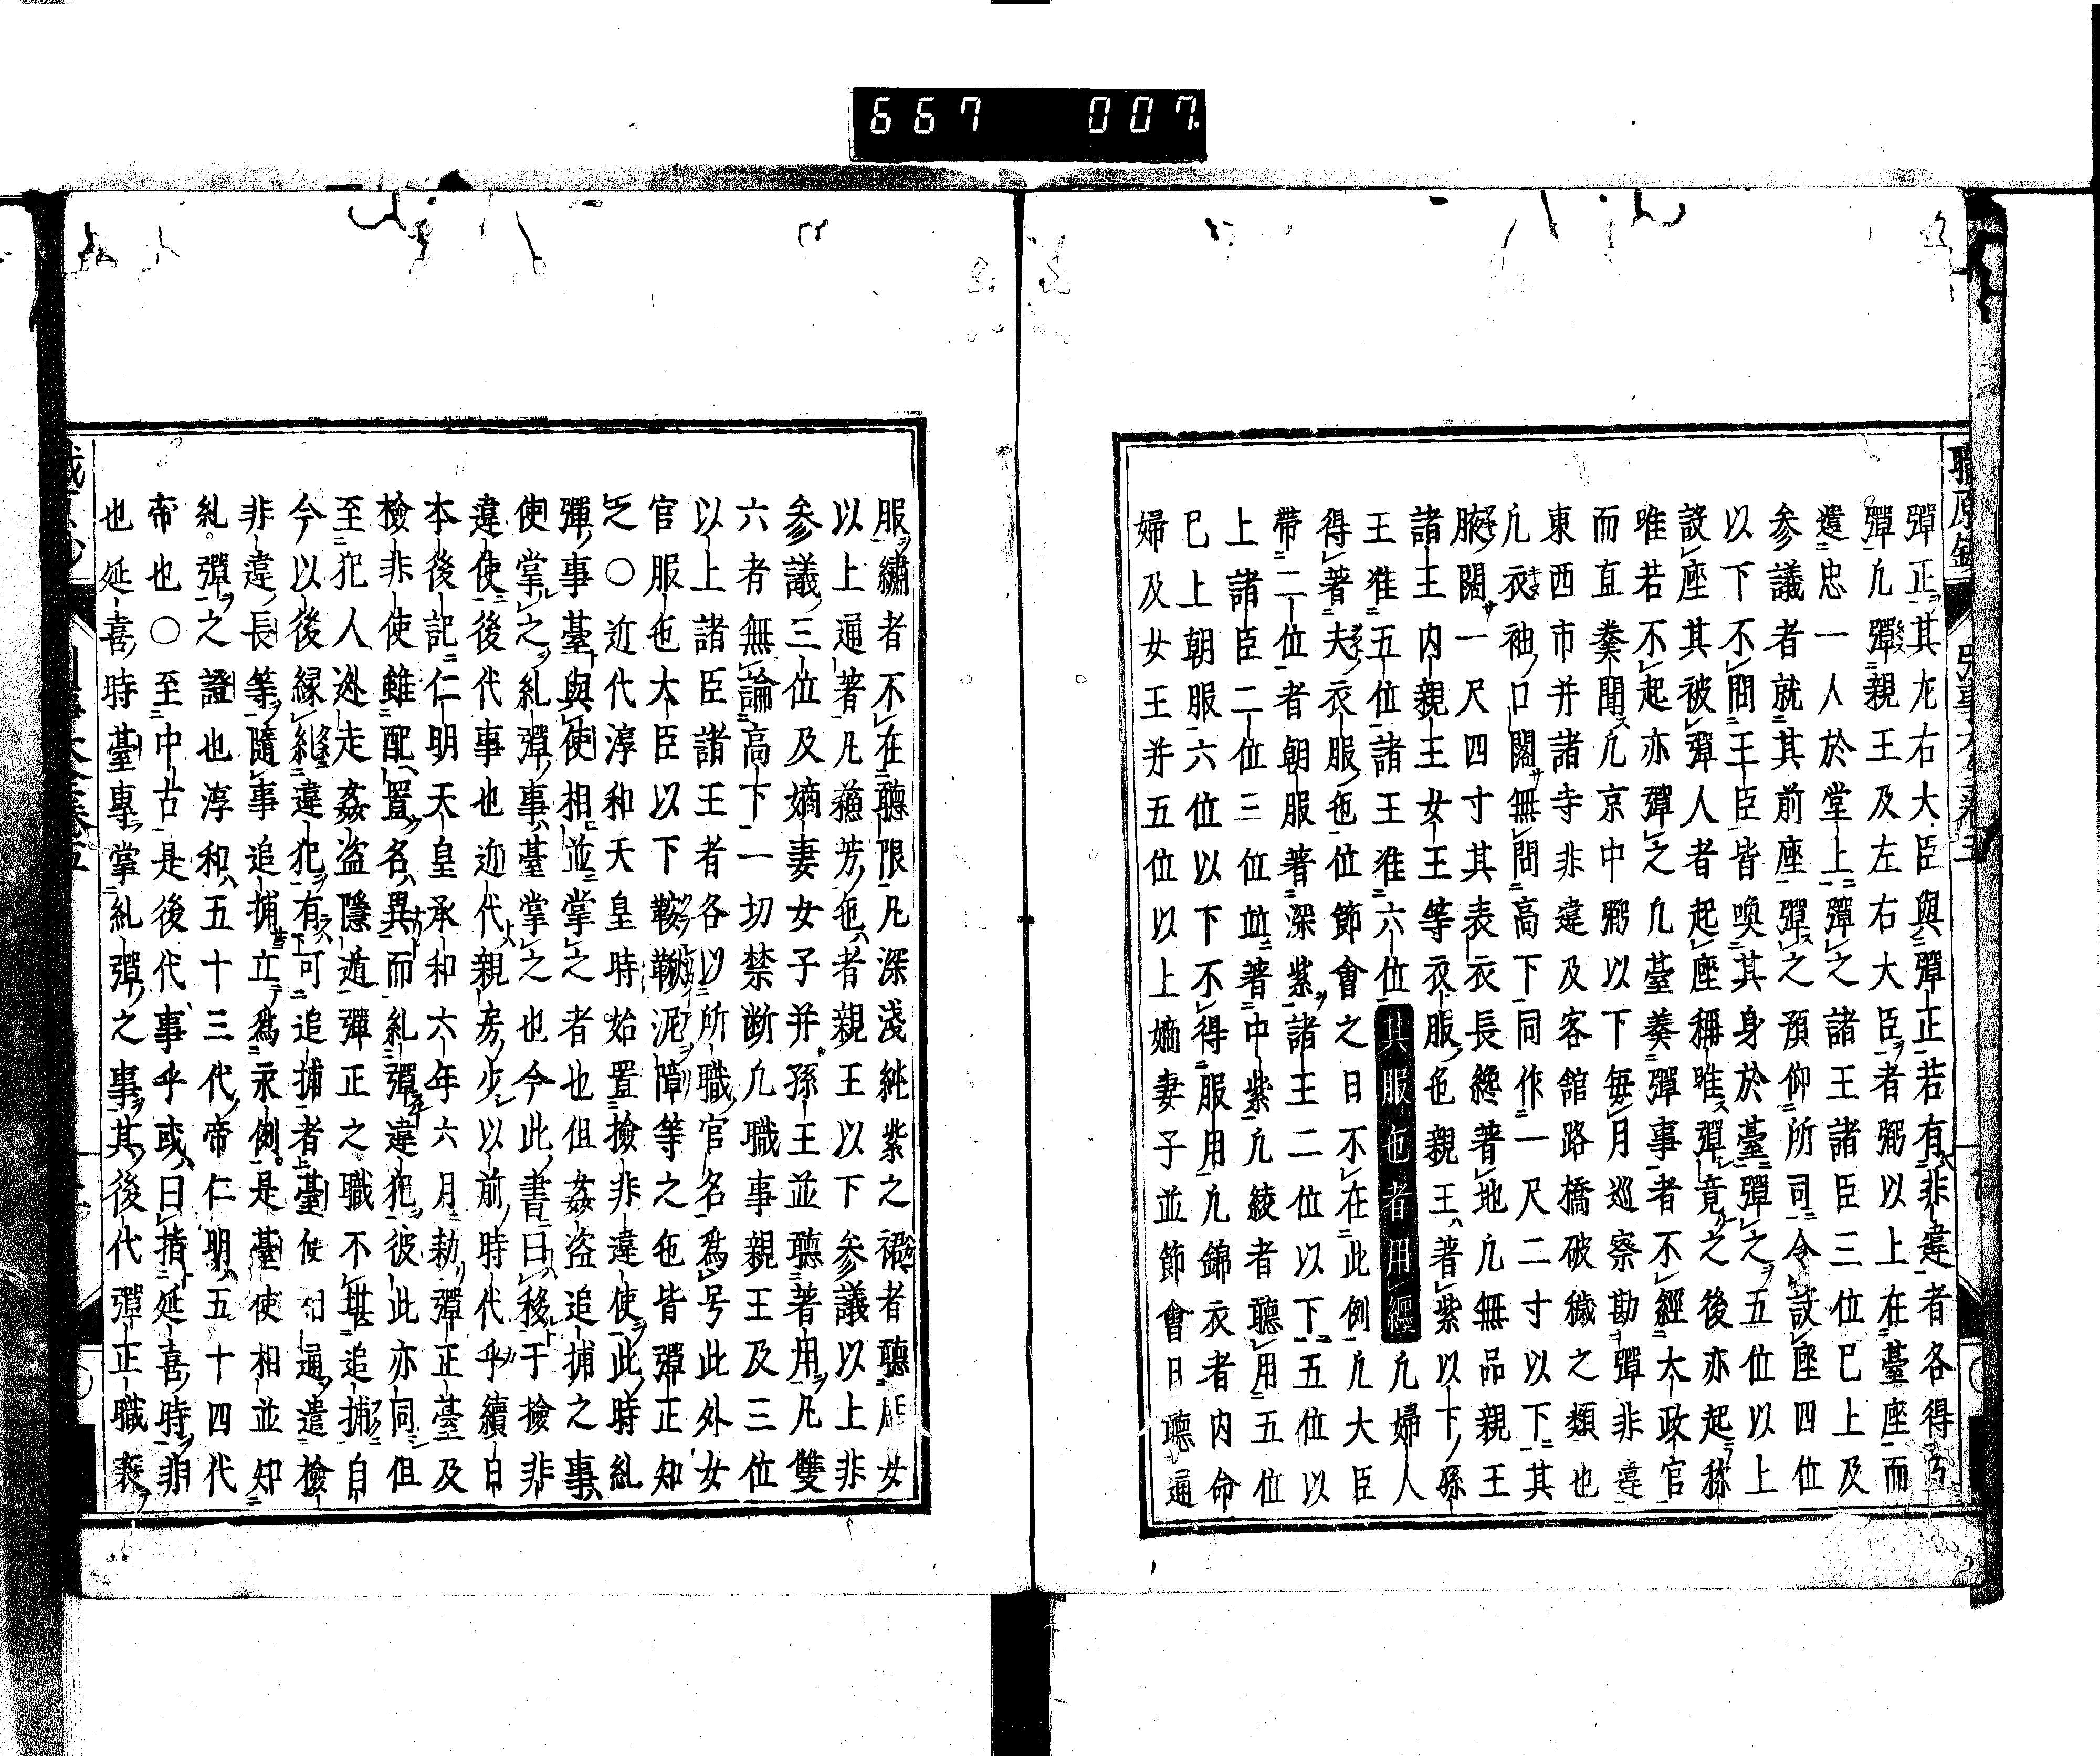 667 007
職原鈔
彈正其左右大臣與彈正若有非違者各得
彈凡彈親王及左右大臣者弼以上在臺座而
遣忠一人於堂上彈之諸王諸臣三位已上及
参議者就其前座彈之預仰所司令設座四位
以下不問王臣皆喚其身於臺彈之五位以上
設座其被彈人者起座稱唯彈竟之後亦起称
唯若不起亦彈之凡臺奏彈事者不經太政官
而直奏聞凡京中弼以下毎月巡察勘彈非違
東西市并諸寺非違及客舘路橋破穢之類也
凡衣袖口闊無問高下同作一尺二寸以下其
腋闊一尺四寸其表衣長纔著地凡無品親王
諸王内親王女王等衣服色親王著紫以下孫
王准五位諸王准六位其服色者用纏凡婦人
得著夫衣服色位節會之日不在此例凡大臣
帶二位者朝服著深紫諸王二位以下五位以
上諸臣二位三位並著中紫凡綾者聽用五位
已上朝服六位以下不得服用凡錦衣者内命
婦及女王并五位以上嫡妻子並節會日聽通
服繡者不在聽限凡深淺純紫之裙者聽庶女
以上通著凡蘓芳色者親王以下参議以上非
参議三位及嫡妻女子并孫王並聽著用凡雙
六者無論高下一切禁断凢職事親王及三位
以上諸臣諸王者各以所職官名爲号此外女
官服色大臣以下鞍韉泥障等之色皆彈正知
之〇近代淳和天皇時始置撿非違使此時糺
彈事臺與使相並掌之者也但姦盗追捕之事
使掌之糺彈事臺掌之也今此書曰移于撿非
違使後代事也迩代親房少以前時代乎續日
本後記仁明天皇承和六年六月勅彈正臺及
撿非使雖配置名異而糺彈違犯彼此亦同但
至犯人逃走姦盗隱遁彈正之職不堪追捕自
今以後縁糺違犯有可追捕者臺使相通遣撿
非違長等隨事追捕立爲永例是臺使相並知
糺彈之證也淳和五十三代帝仁明五十四代
帝也〇至中古是後代事乎或曰指延喜時非
也延喜時臺專掌糺彈之事其後代彈正職衰